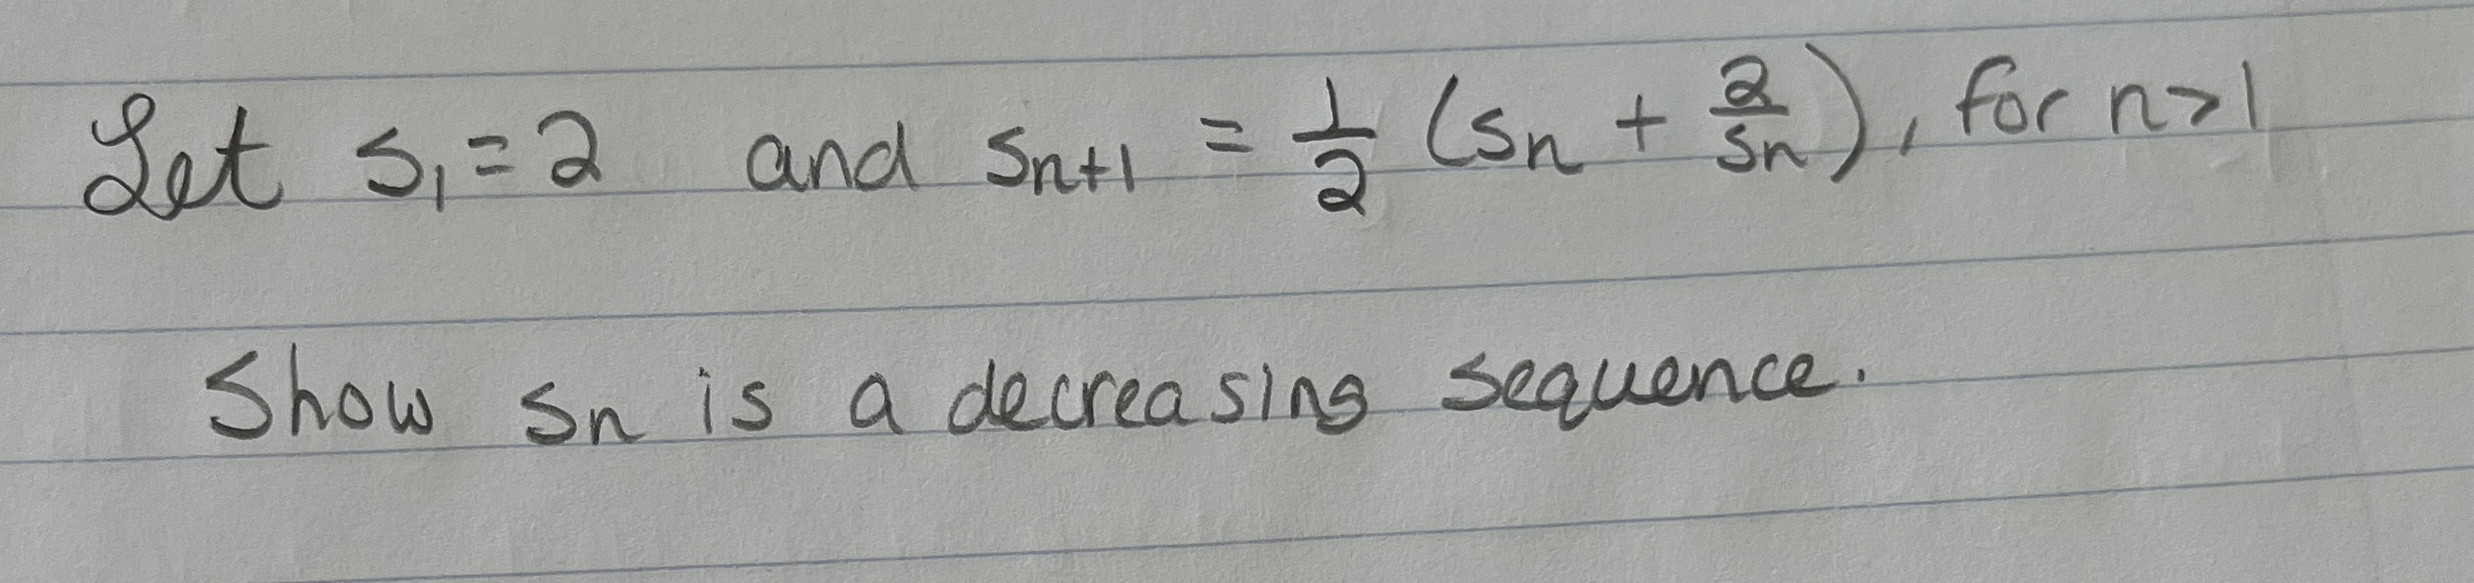 Let s₁ = 2 and sₙ₊₁ = 1/2 (sₙ + 2/sₙ), for n > 1
Show sₙ is a decreasing sequence.